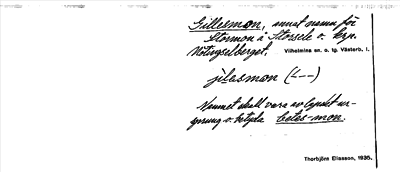 Gillesmon, annat namn för
Stormon i Storsele o. krp.
Nötingselberget. Vilhelmina sn. o. tp. Västerb. l.
jilasmon (´--)
Namnet skall vara av lapskt ur-
sprung o. betyda betes-mon.
Thorbjöns Eliasson, 1935.